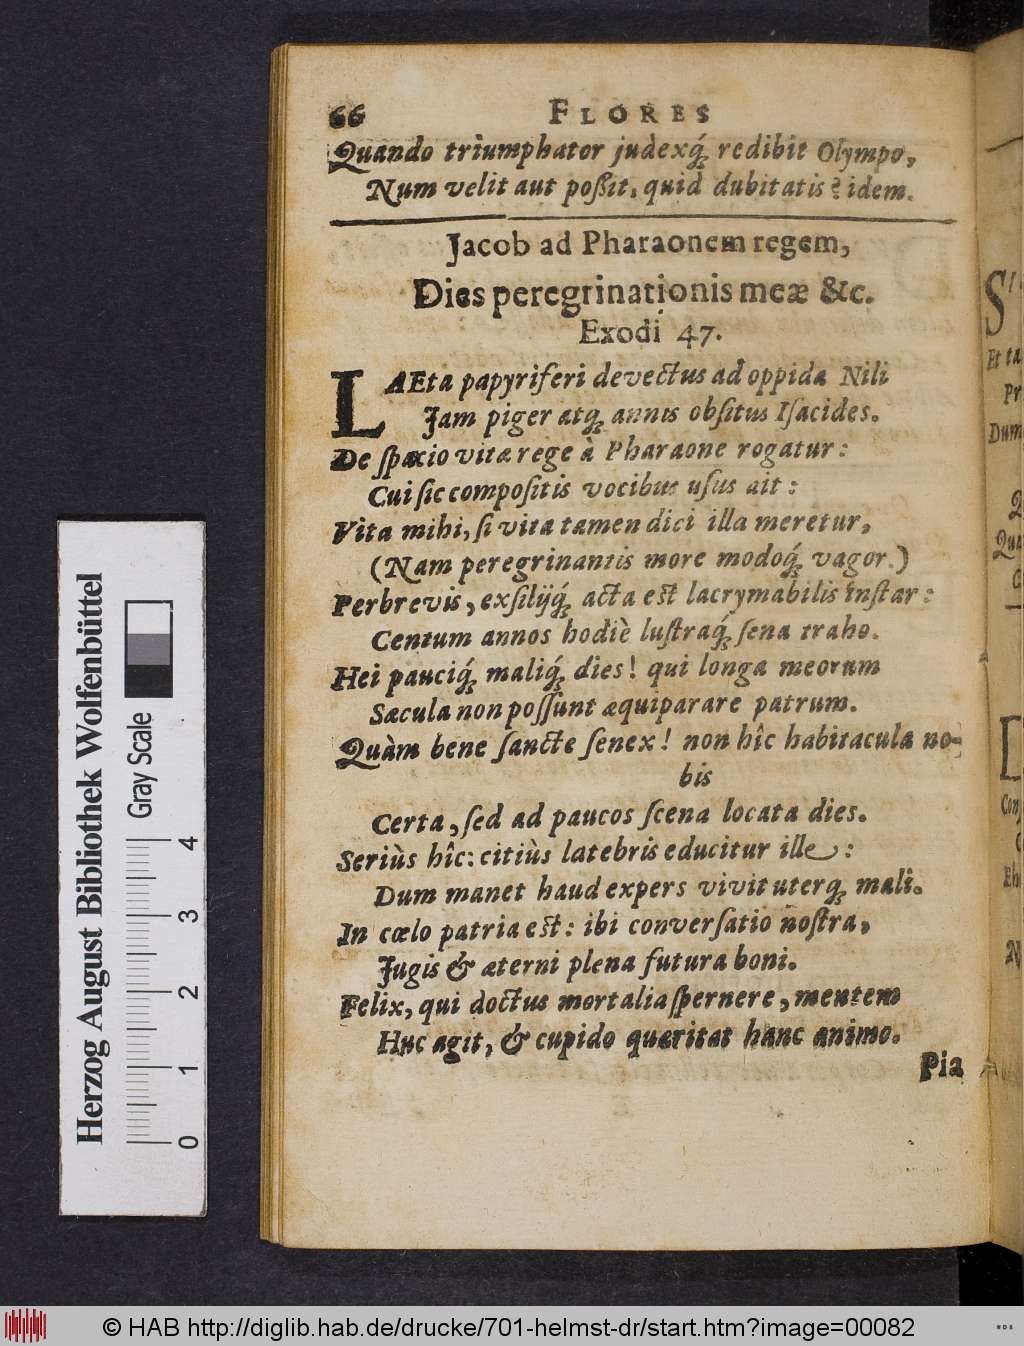 66 FLORES
Quando triumphator judexq́; redibit Olympo,
Num velit aut poßit, quid dubitatis? idem.
Jacob ad Pharaonem regem,
Dies peregrinationis meæ &c.
Exodi 47.
LAEta papyriferi devectus ad oppida Nili
Jam piger atq; annis obſitus Iſacides.
De ſpacio vitæ rege à Pharaone rogatur:
Cui ſic compoſitis vocibus uſus ait:
Vita mihi, ſi vita tamen dici illa meretur,
(Nam peregrinantis more modoq́; vagor.)
Perbrevis, exſilijq́; acta est lacrymabilis inſtar:
Centum annos hodiè luſtraq́; ſena traho.
Hei pauciq́; maliq́; dies! qui longa meorum
Sæcula non poſſunt æquiparare patrum.
Quàm bene ſancte ſenex! non hîc habitacula no-
bis
Certa, ſed ad paucos ſcena locata dies.
Seriùs hîc: citiùs latebris educitur ille:
Dum manet haud expers vivit uterq; mali.
In cœlo patria est: ibi converſatio noſtra,
Jugis & æterni plena futura boni.
Felix, qui doctus mortalia ſpernere, mentem
Huc agit, & cupido quæritat hanc animo.
Pia
Herzog August Bibliothek Wolfenbüttel
Gray Scale
0 1 2 3 4
Et ta
Pr
Dum
Qua
Con
© HAB http://diglib.hab.de/drucke/701-helmst-dr/start.htm?image=00082